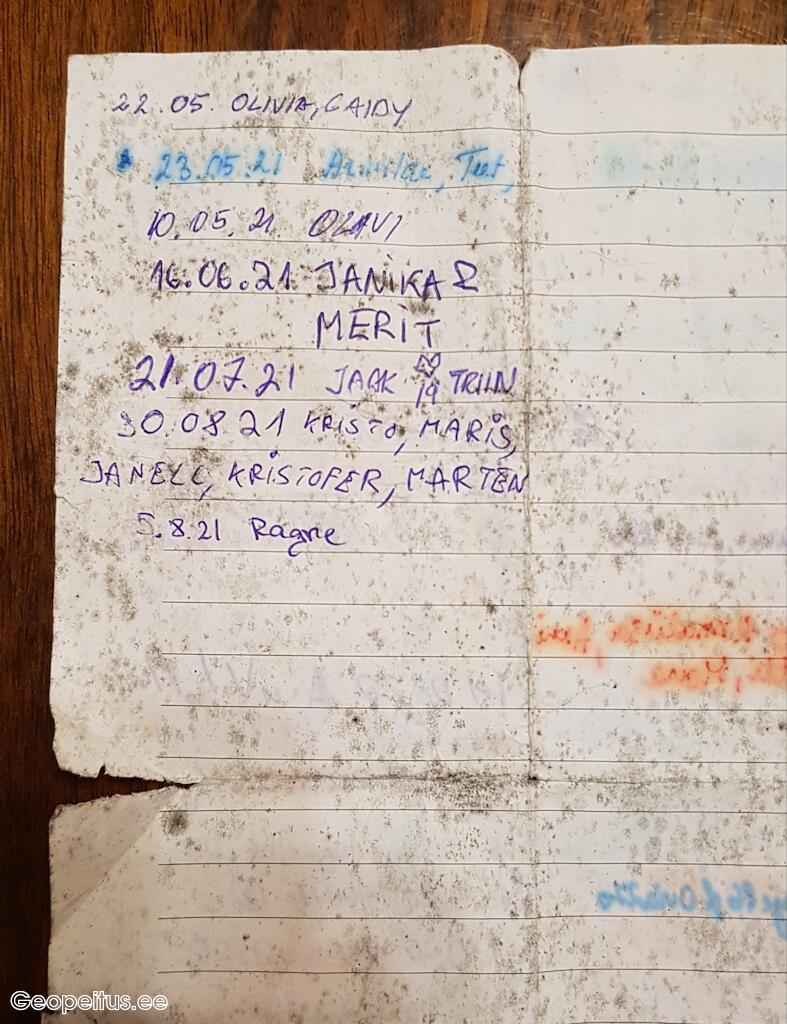 22.05. OLIVIA, CAIDY
23.05.21 Teet,
10.05.21 OLAVI
16.06.21 JANIKA &
MERIT
21.07.21 JAAK 19 TRIIN
30.08.21 KRISTO, MARIS,
JANELL, KRISTOFER, MARTEN
5.8.21 Ragne
Geopeitus.ee